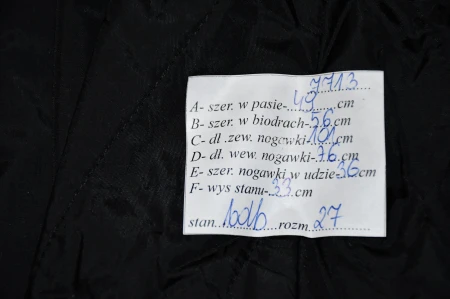 7713
A- szer. w pasie-49cm
B- szer. w biodrach-56cm
C- dł .zew. nogawki-101cm
D- dł. wew. nogawki-76cm
E- szer. nogawki w udzie-36cm
F- wys stanu-33cm
stan rozm 27